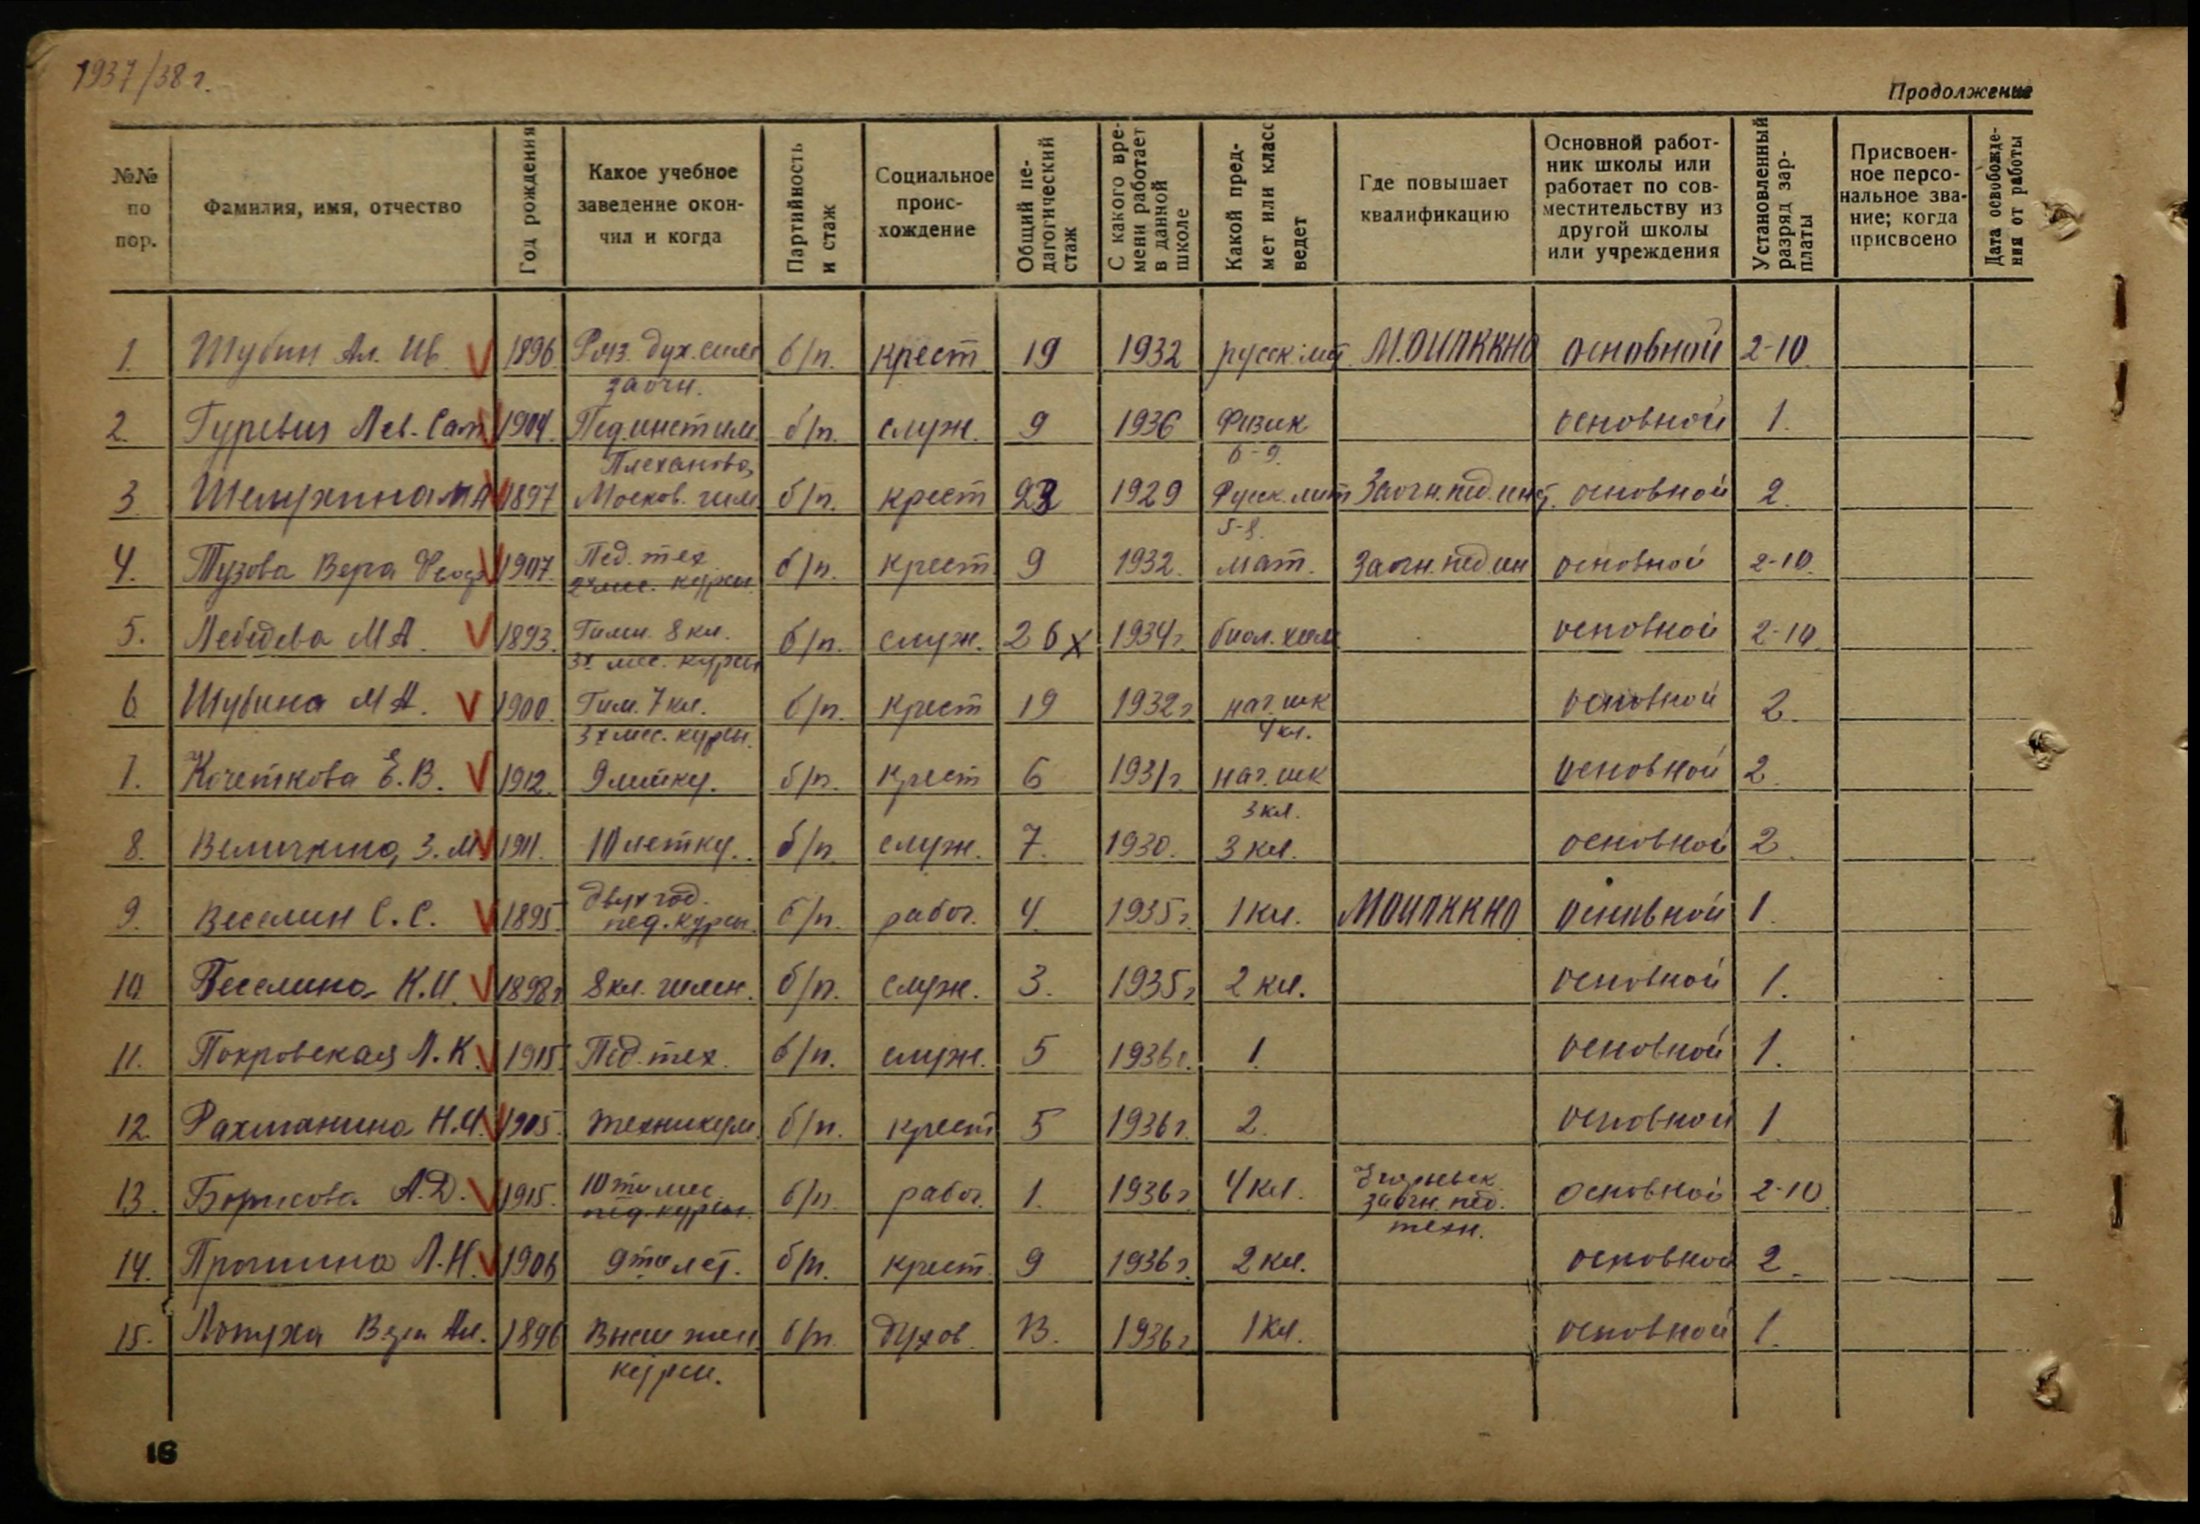 1937/38 г.
Продолжение
№№ по пор.
Фамилия, имя, отчество
Год рождения
Какое учебное заведение окончил и когда
Партийность и стаж
Социальное происхождение
Общий педагогический стаж
С какого времени работает в данной школе
Какой предмет или класс ведет
Где повышает квалификацию
Основной работник школы или работает по совместительству из другой школы или учреждения
Установленный разряд зарплаты
Присвоенное персональное звание; когда присвоено
Дата освобождения от работы
1. Шубин Ал. Ив. V 1896 Ряз. дух. сем. б/п. крест 19 1932 русск. лит. М.ОИПККНО основной 2-10
заочн.
2. Гуревич Лев. Сам V 1904. Пед. инст им. б/п. служ. 9 1936 Физик основной 1.
Плеханова, 6-9.
3. Шемухина М А V 1897 Москов. гим. б/п. крест 23 1929 Русск. лит Заочн. пед. инст. основной 2.
5-8.
4. Тузова Вера Феод V 1907. Пед. тех. б/п. крест 9 1932. мат. Заочн. пед. ин основной 2-10.
2х мес. курсы.
5. Лебедева М А. V 1893. Гимн. 8 кл. б/п. служ. 26 х 1934 г. биол. хим основной 2-10.
3х мес. курсы
6. Шубина М А. V 1900. Гим. 7 кл. б/п. крест 19 1932 г нач. шк основной 2.
3х мес. курсы. 4 кл.
7. Кочеткова Е. В. V 1912. 9 летку. б/п. крест 6 1931 г нач. шк основной 2.
3 кл.
8. Величкина, З. М V 1911. 10 летку. б/п. служ. 7. 1930. 3 кл. основной 2.
9. Веселин С. С. V 1895. двух год. пед. курсы. б/п. рабоч. 4. 1935 г. 1 кл. МОИПККНО основной 1.
10 Веселина К. И. V 1898 г 8 кл. гимн. б/п. служ. 3. 1935 г 2 кл. основной 1.
11. Покровская Л. К. V 1915. Пед. тех. б/п. служ. 5 1936 г. 1. основной 1.
12. Рахманина Н. И. V 1905. техникум б/п. крест 5 1936 г. 2. основной 1
13. Борисова А. Д. V 1915. 10 ти мес. пед. курсы. б/п. рабоч. 1. 1936 г 4 кл. Егорьевск. заочн. пед. основной 2-10
техн.
14. Прошина Л. Н. V 1906 9 ти лет. б/п. крест. 9 1936 г. 2 кл. основной 2.
15. Лопуха Вера Ал. 1896 Высш жен б/п. духов. 13. 1936 г 1 кл. основной 1.
курсы.
16